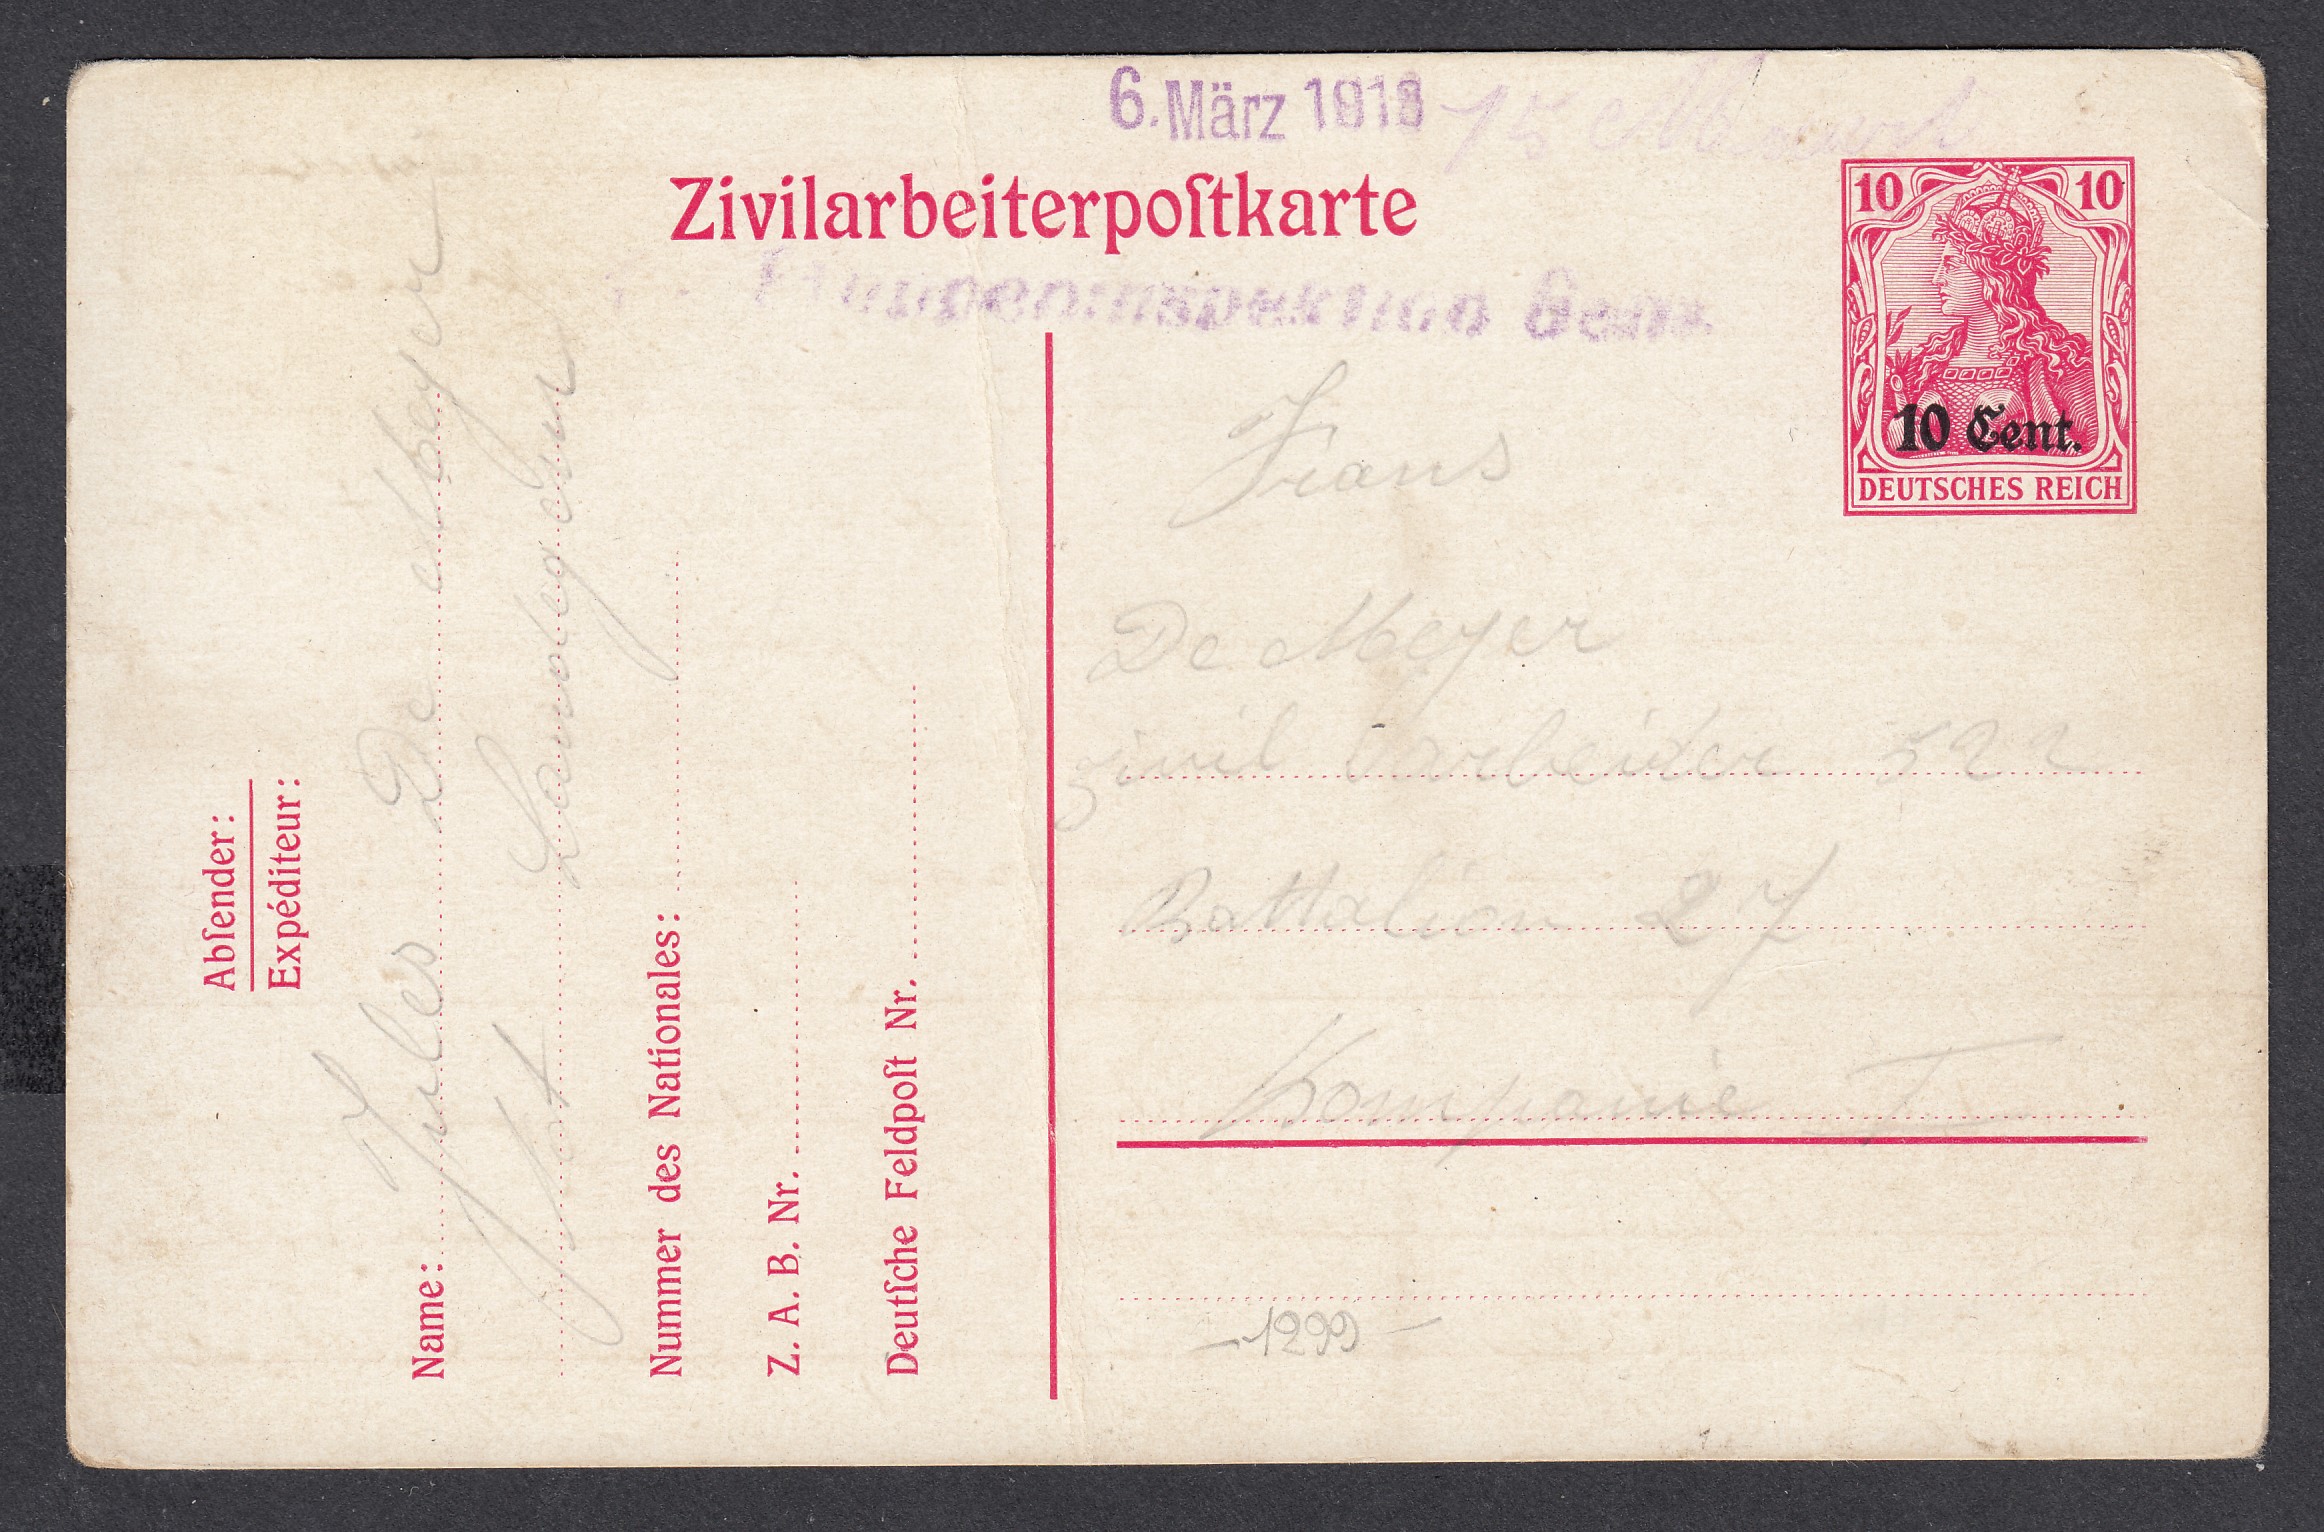 6. März 1918
Zivilarbeiterpoſtkarte
10 10
10 Cent.
DEUTSCHES REICH
Abſender:
Expéditeur:
Name: Jules De Meyer
Nummer des Nationales:
Z. A. B. Nr.
Deutſche Feldpoſt Nr.
Frans
De Meyer
zivil arbeider 522
Battalion 27
Kompanie I
1299